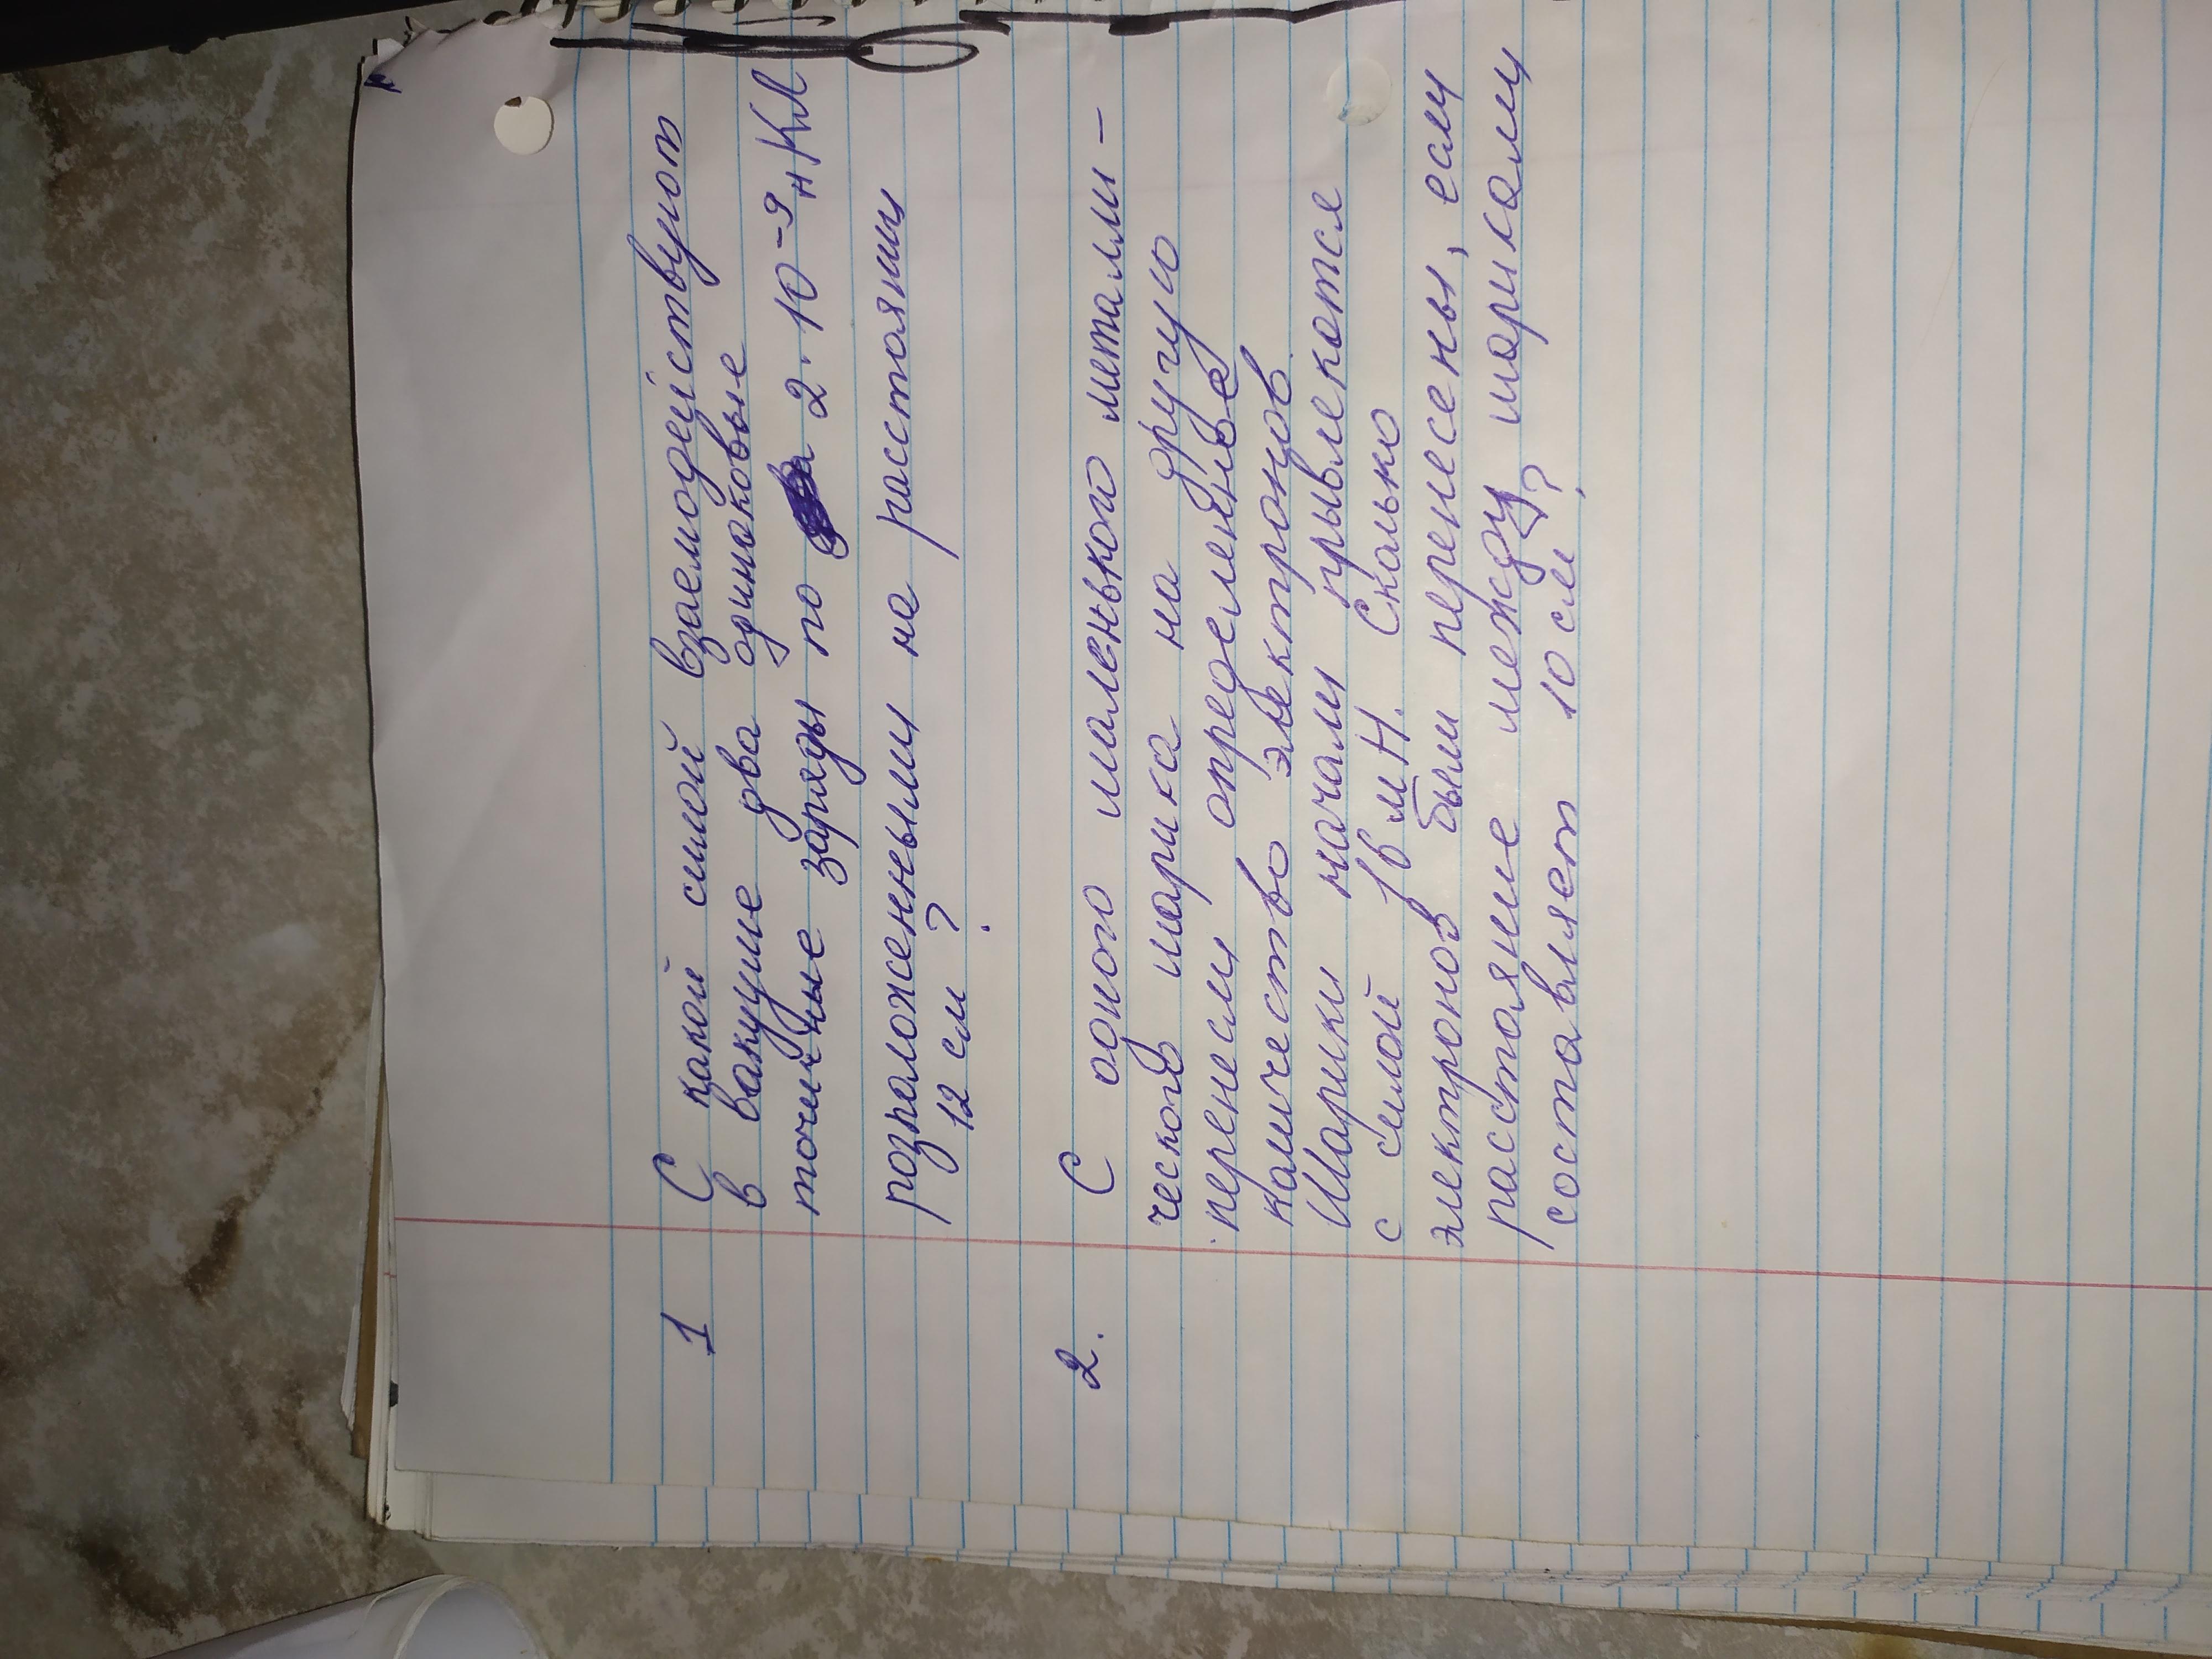 1 С какой силой взаемодействуют
в вакууме два одинаковые
точечные заряды по 2 · 10⁻⁹ нКл
розположенными на расстоянии
12 см ?
2. С одного маленького металли-
ческого шарика на другую
перенесли определеные
количество электронов.
Шарики начали прывлекотся
с силой 16 мН. Сколько
электронов были перенесены, если
расстояние между шориками
составляет 10 см ?